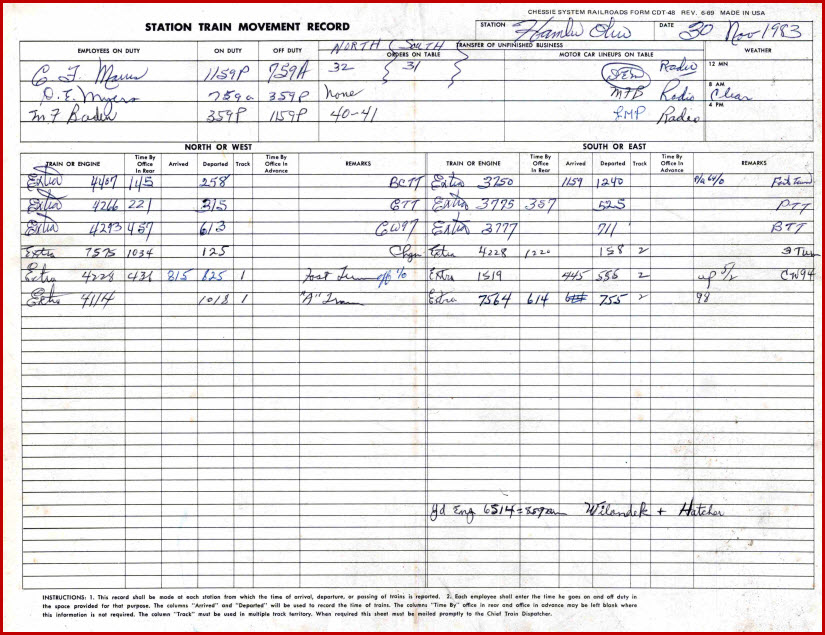 CHESSIE SYSTEM RAILROADS FORM CDT-48 REV. 6-69 MADE IN USA
STATION TRAIN MOVEMENT RECORD
STATION Hamler Ohio DATE 30 Nov 1983
EMPLOYEES ON DUTY ON DUTY OFF DUTY NORTH SOUTH TRANSFER OF UNFINISHED BUSINESS WEATHER
ORDERS ON TABLE MOTOR CAR LINEUPS ON TABLE
1159P 759A 32 31 Radio 12 MN
D. E. Myers 759a 359P None MFB Radio 8 AM Clear
M F Baden 359P 1159P 40-41 LMP Radio 4 PM
NORTH OR WEST SOUTH OR EAST
TRAIN OR ENGINE Time By Office In Rear Arrived Departed Track Time By Office In Advance REMARKS TRAIN OR ENGINE Time By Office In Rear Arrived Departed Track Time By Office In Advance REMARKS
Extra 4407 145 258 BCTT Extra 3750 1159 1240
Extra 4266 221 315 Extra 3775 357 525
Extra 4293 457 613 CW97 Extra 3777 711 BTT
Extra 7575 1034 125 Extra 4228 1220 158 2 3 Turn
Extra 4228 436 815 825 1 Extra 1519 445 555 2 CW94
Extra 4114 1018 1 "A" Train Extra 7564 614 755 2 98
Yd Eng 6514 = 859am Wilandek + Hatcher
INSTRUCTIONS: 1. This record shall be made at each station from which the time of arrival, departure, or passing of trains is reported. 2. Each employee shall enter the time he goes on and off duty in
the space provided for that purpose. The columns "Arrived" and "Departed" will be used to record the time of trains. The columns "Time By" office in rear and office in advance may be left blank where
this information is not required. The column "Track" must be used in multiple track territory. When required this sheet must be mailed promptly to the Chief Train Dispatcher.